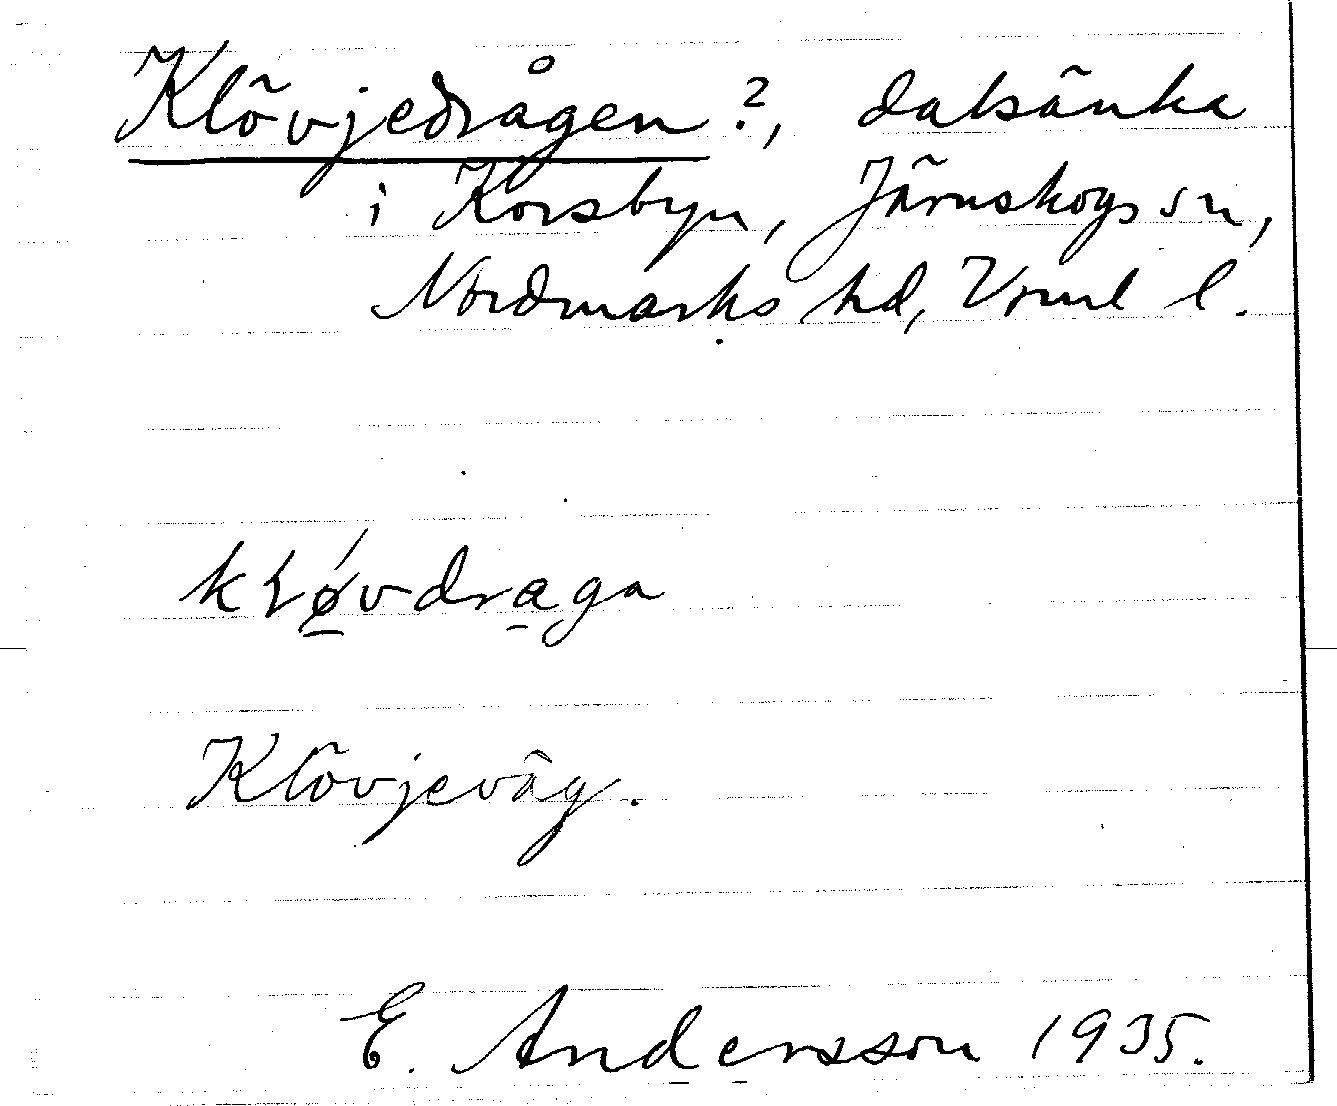 Klövjedrågen?, dalsänka
i Korsbyn, Järnskogs sn,
Nordmarks hd, Vrml l.
kLǿ̱vdra̱ga
Klövjeväg.
E. Andersson 1935.